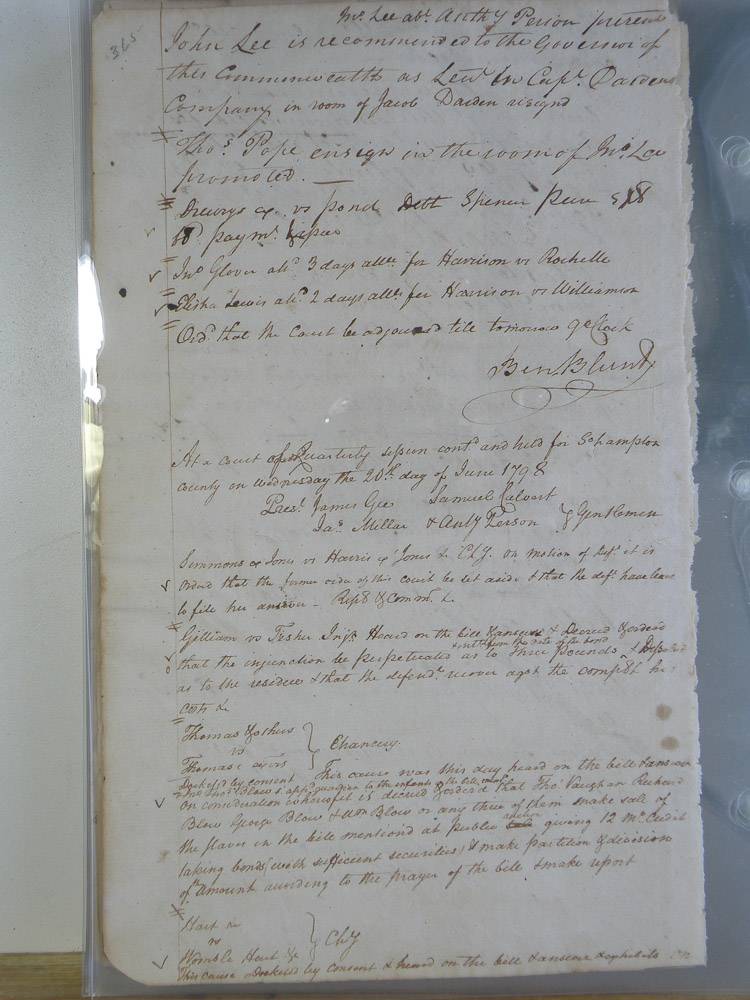 365
Mr. Lee abt. Anthy Person present
John Lee is recommended to the Governor of
this Commonwealth as Lew.t in Capt. Dardens
Company in room of Jacob Darden resignd
Thos. Pope ensign in the room of Jno. Lee
promoted.
Drewrys ex vs pond Debt Spencer
paymt.
Jno Glover alld 3 days attce for Harrison vs Rochelle
Elisha Lewis alld 2 days attce for Harrison vs Williamson
Ordd. that the Court be adjourned till tomorrow 9 oClock
Ben Blunt
At a Court of Quarterly session contd. and held for Sohampton
county on Wednesday the 20th. day of June 1798
Prest. James Gee Samuel Calvert
Jas. Millar & Anty Person } Gentlemen
Simmons ex Jones vs Harris ex Jones & ChY. on motion of deft. it is
Orderd that the former order of this court be set aside & that the deft. have leave
to file her answer - Repn & Commn. &
Gilliam vs Fisher Injn Heard on the bill & answer & Decreed & orderd
& intt. from the date of the bond
that the injunction be perpetuated as to three pounds & Dissolved
as to the residue & that the defendt. recover agst the complt his
costs &
Thomas & others
vs
Thomas's } Chancery.
Docketed by consent This cause was this day heard on the bill & answer
& Blow appd. guardian to the infants in the bill
On consideration whereof it is decreed & orderd that Tho' Vaughan Richard
Blow George Blow & Wm Blow or any three of them make sale of
the slaves in the bill mentiond at Public auction giving 12 mo. Credit
taking bonds (with sufficient securities) & make partition & division
of Amount according to the prayer of the bill & make report
Hart &
vs
Womble Hart & } ChY
This cause Docketed by consent & heard on the bill & answer & exhibits on